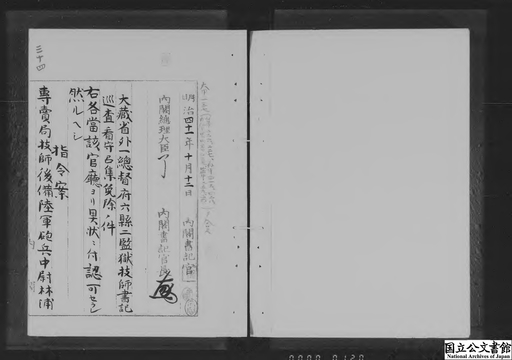 明治四十一年十月十三日
内閣書記官
内閣総理大臣
内閣書記官長
大蔵省外一總督府六縣二監獄技師書記
巡査看守召集免除ノ件
右各當該官廳ヨリ具状ニ付認可セラレ
然ルヘシ
指令案
專賣局技師後備陸軍砲兵中尉林浦
三十四
国立公文書館
National Archives of Japan